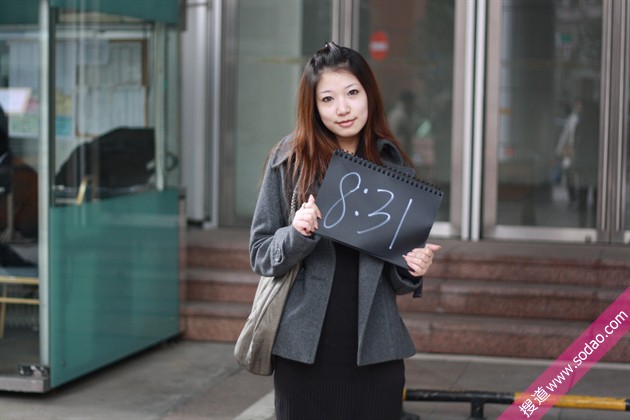 8:31
搜道 www.sodao.com